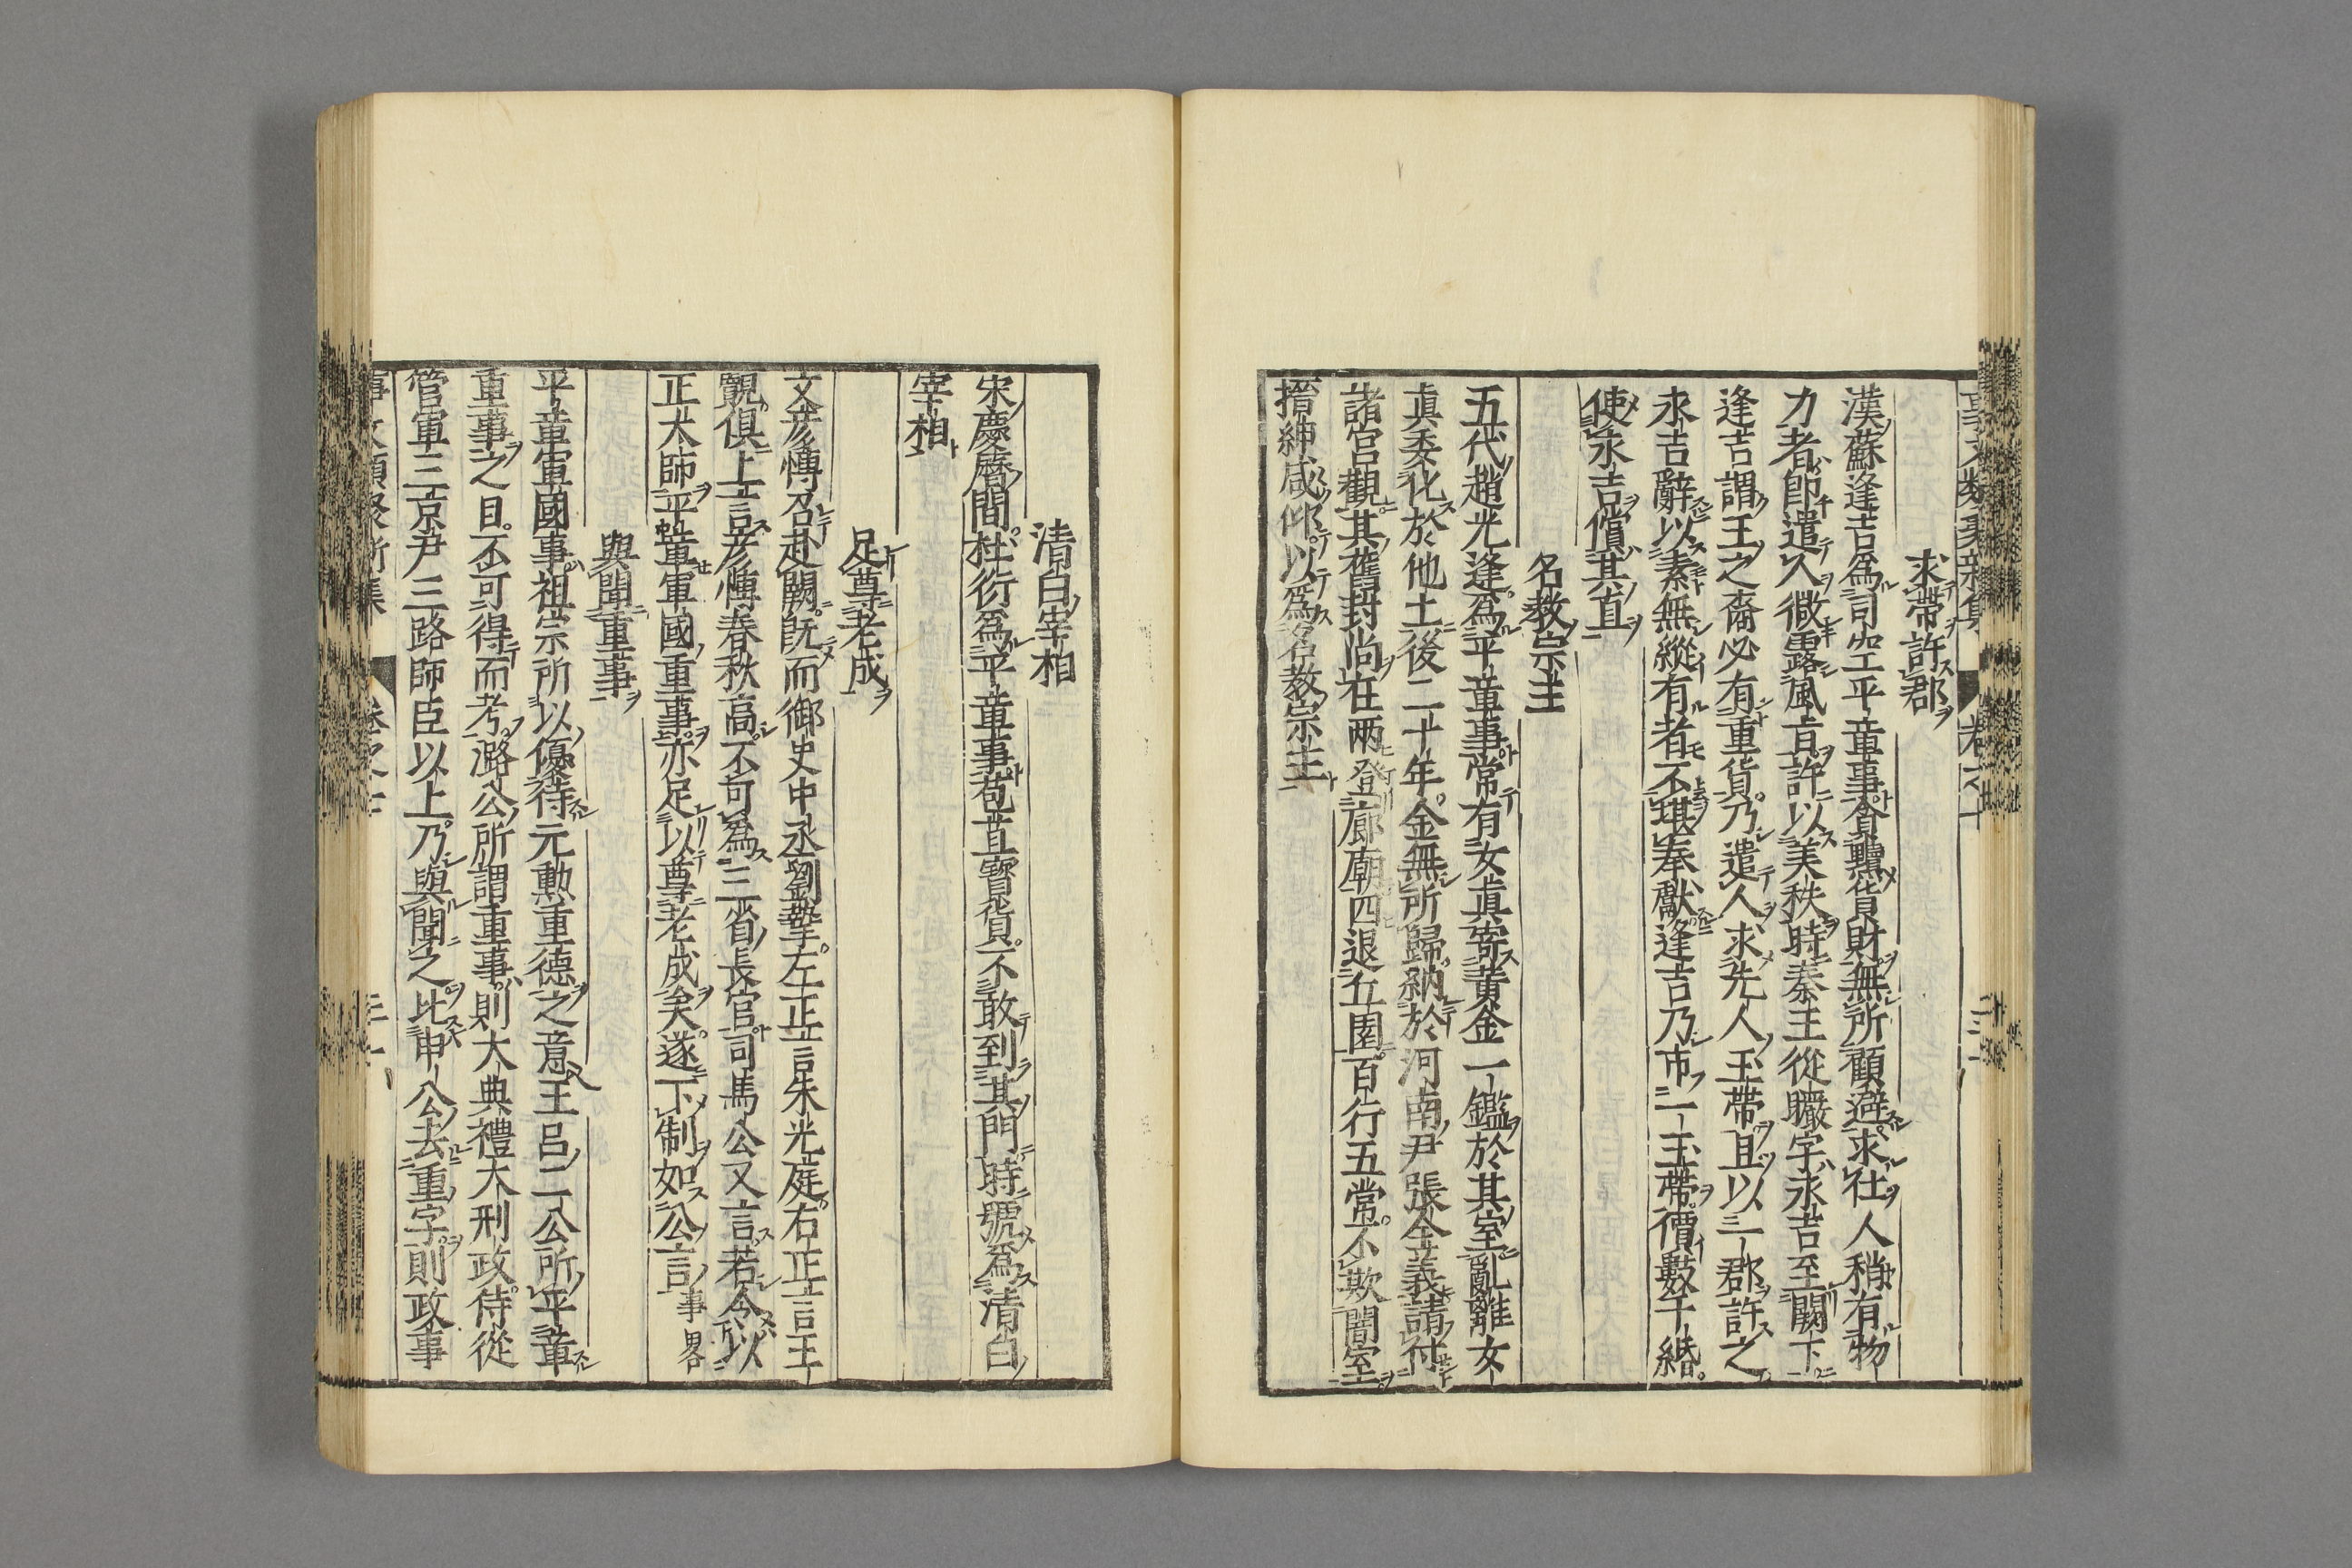 求帶許郡
漢蘇逢吉爲司空平章事貪黷貨財無所顧避求仕人稍有物
力者卽遣人微露風旨許以美秩時秦王從曮字永吉至闕下
逢吉謂王之裔必有重貨乃遣人求先人玉帶且以一郡許之
永吉辭以素無縱有者不堪奉獻逢吉乃市一玉帶價數千緡
使永吉償其直
名教宗主
五代趙光逢爲平章事常有女眞寄黃金一鎰於其室亂離女
眞委化於他土後二十年金無所歸納於河南尹張全義請付
諸宮觀其舊封尚在兩登廊廟四退丘園百行五常不欺闇室
搢紳咸仰以爲名教宗主
清白宰相
宋慶曆間杜衍爲平章事苞苴寶貨不敢到其門時號爲清白
宰相
足尊老成
文彦愽召赴闕旣而御史中丞劉摯左正言朱光庭右正言王
覿俱上言彦愽春秋高不可爲三省長官司馬公又言若令以
正太師平章軍國重事亦足以尊老成矣遂下制如公言事畧
與聞重事
平章軍國事祖宗所以優待元勲重德之意又王呂二公所平章
重事之目不可得而考潞公所謂重事則大典禮大刑政侍從
管軍三京尹三路師臣以上乃與聞之比申公去重字則政事